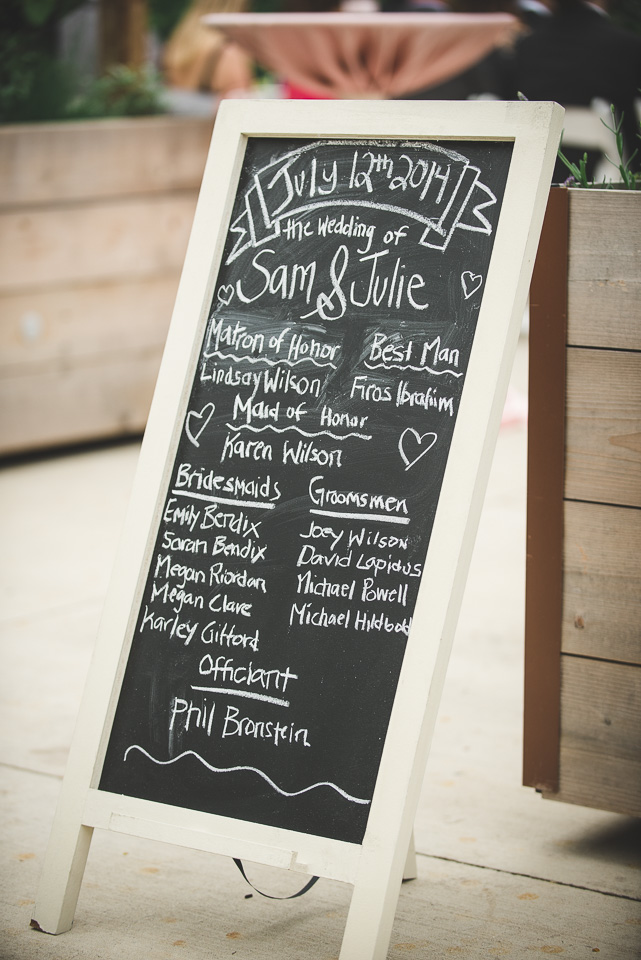 July 12th 2014
the Wedding of
Sam & Julie
Matron of Honor
Lindsay Wilson
Best Man
Firas Ibrahim
Maid of Honor
Karen Wilson
Bridesmaids
Emily Bendix
Saran Bendix
Megan Riordan
Megan Clave
Karley Gifford
Groomsmen
Joey Wilson
David Lapidus
Michael Powell
Michael Hildbold
Officiant
Phil Bronstein